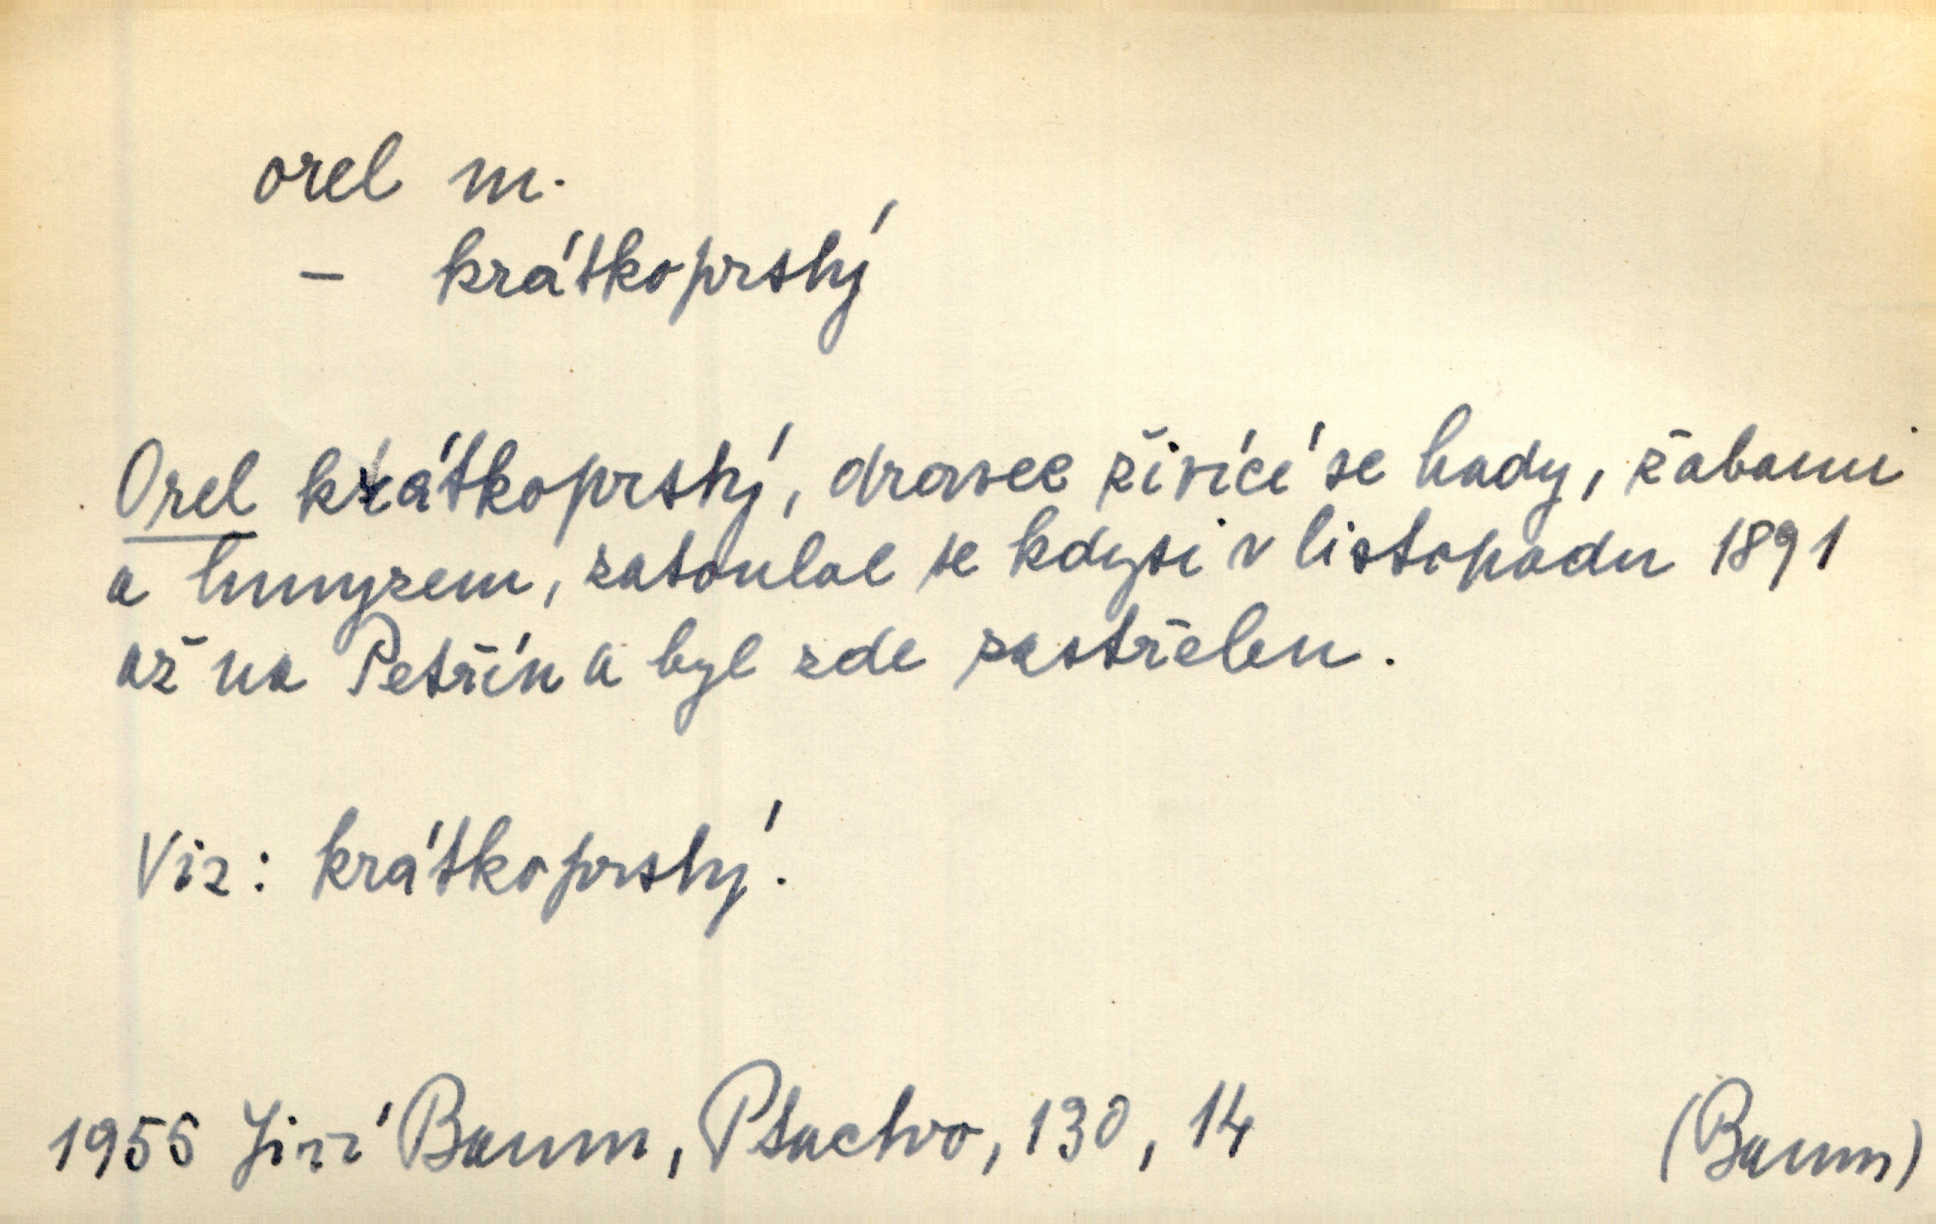 orel m.
– krátkoprský
Orel krátkoprský, dravec živící se hady, žabami
a hmyzem, zatoulal se kdysi v listopadu 1891
až na Petřín a byl zde zastřelen.
Viz: krátkoprský.
1955 Jiří Baum, Ptactvo, 130, 14 (Baum)